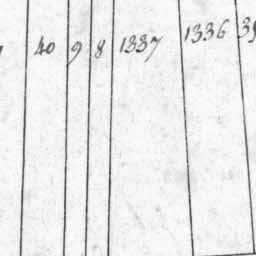 40 9 8 1337 1336